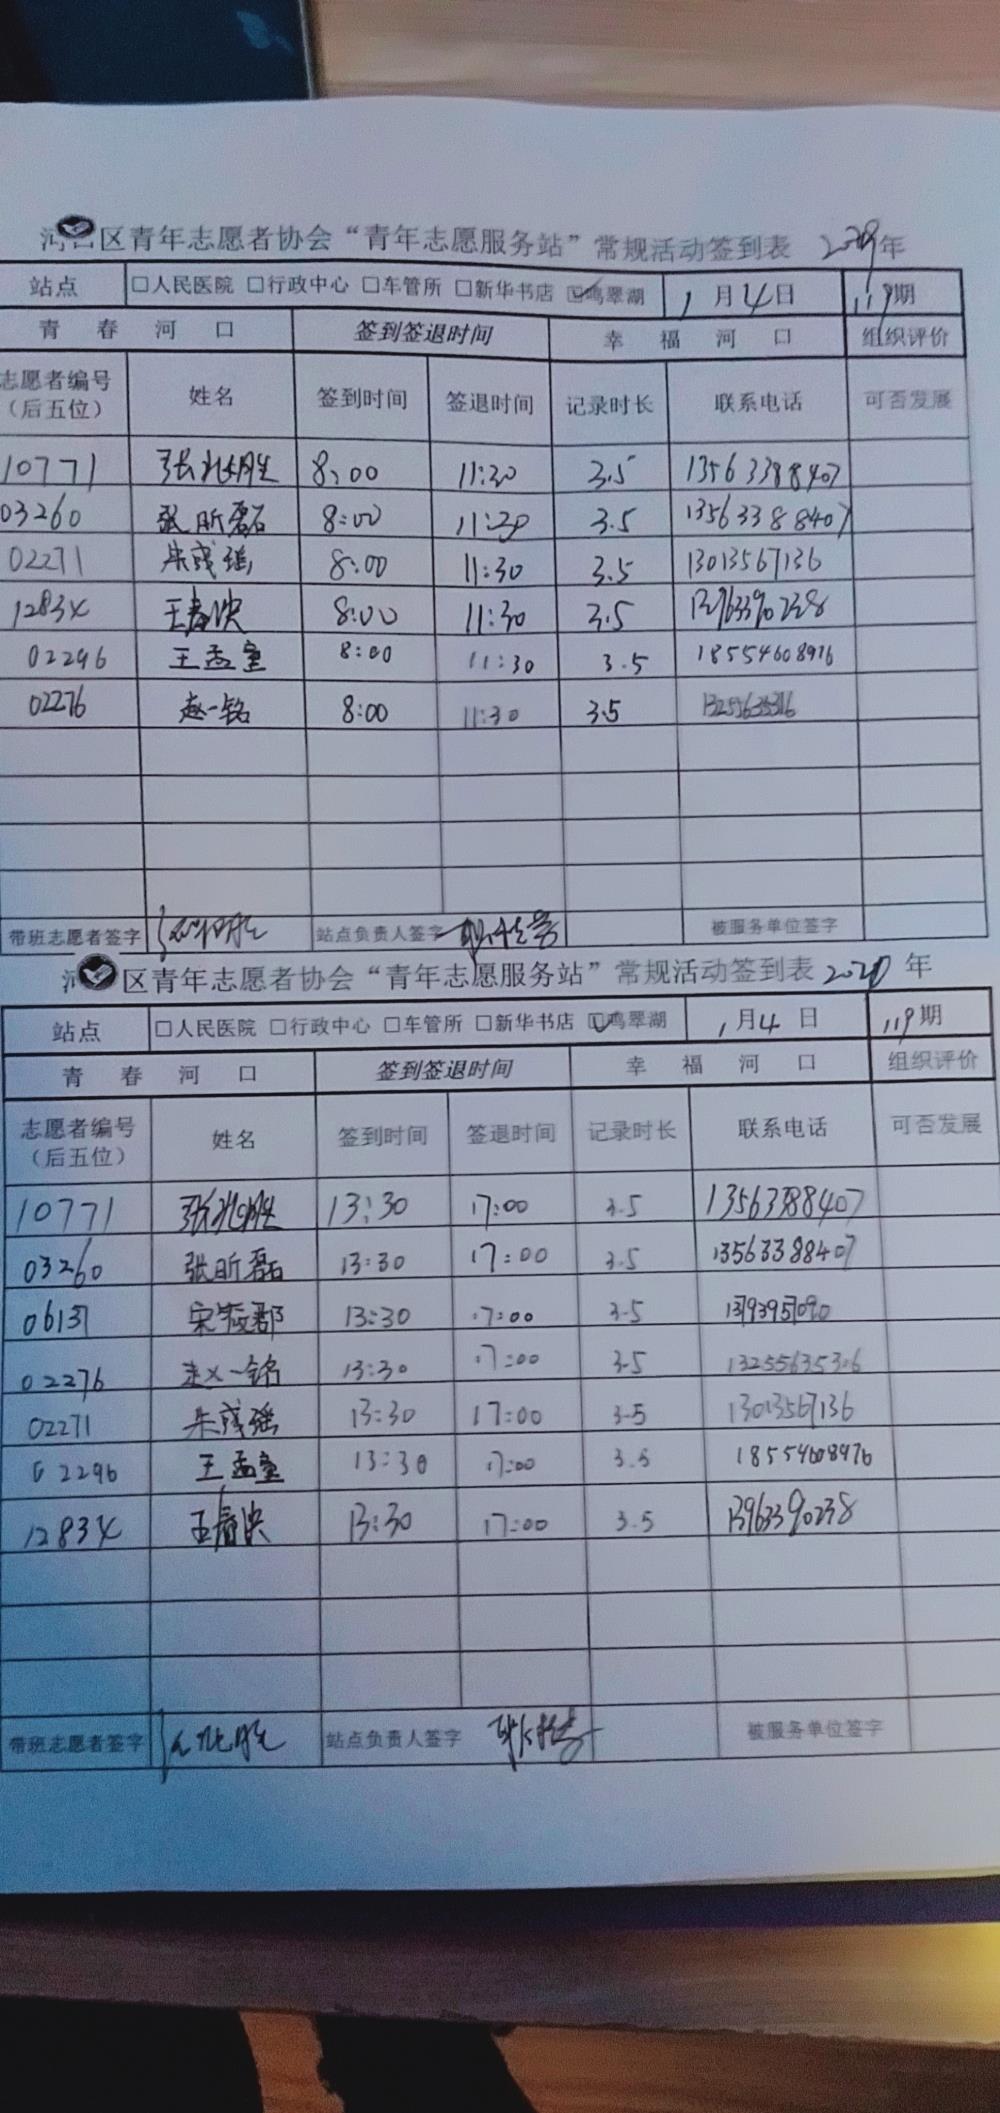 河口区青年志愿者协会“青年志愿服务站”常规活动签到表 年
站点 □人民医院 □行政中心 □车管所 □新华书店 ☑鸣翠湖 1月4日 119期
青春河口 签到签退时间 幸福河口 组织评价
志愿者编号（后五位） 姓名 签到时间 签退时间 记录时长 联系电话 可否发展
10771 张兆胜 8:00 11:30 3.5 13563388407
03260 张昕磊 8:00 11:30 3.5 13563388407
02271 朱彧瑶 8:00 11:30 3.5 13013567136
12834 8:00 11:30 3.5 13963390238
02296 王孟童 8:00 11:30 3.5 18554608976
02276 赵一铭 8:00 11:30 3.5
带班志愿者签字 站点负责人签字 被服务单位签字
河口区青年志愿者协会“青年志愿服务站”常规活动签到表 2020年
站点 □人民医院 □行政中心 □车管所 □新华书店 ☑鸣翠湖 1月4日 119期
青春河口 签到签退时间 幸福河口 组织评价
志愿者编号（后五位） 姓名 签到时间 签退时间 记录时长 联系电话 可否发展
10771 张兆胜 13:30 17:00 3.5 13563388407
03260 张昕磊 13:30 17:00 3.5 13563388407
06137 13:30 17:00 3.5
02276 赵一铭 13:30 17:00 3.5
02271 朱彧瑶 13:30 17:00 3.5 13013567136
02296 王孟童 13:30 17:00 3.5 18554608976
12834 13:30 17:00 3.5 13963390238
带班志愿者签字 站点负责人签字 被服务单位签字